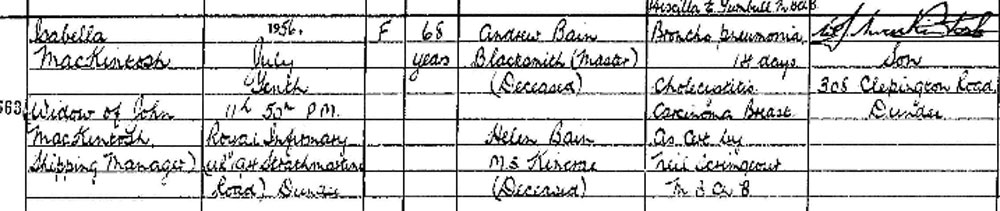 Priscilla E. Turnbull M.B. Ch.B.
Isabella
MacKintosh
563
Widow of John
MacKintosh,
Shipping Manager)
1956.
July
Tenth
11h 50m P.M.
Royal Infirmary
Strathmartine
Road) Dundee
F
68
years
Andrew Bain
Blacksmith (Master)
(Deceased)
Helen Bain
M.S. Kinroe
(Deceased)
Broncho pneumonia
14 days
Cholecistitis
Carcinoma Breast
As Cert by
Neil
M B Ch B
MacKintosh
Son
308 Clepington Road,
Dundee